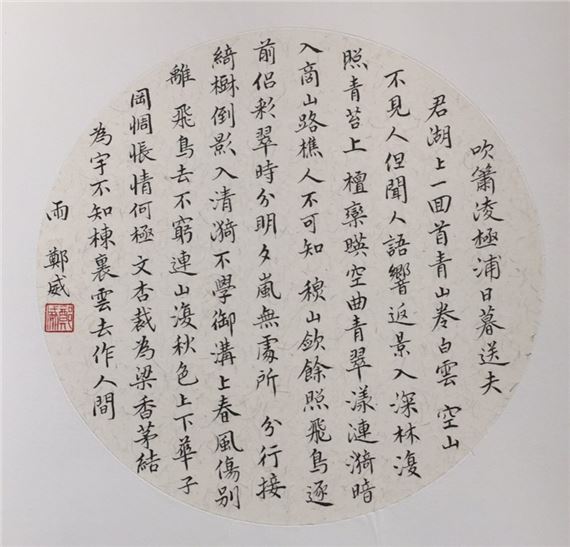 吹簫淩極浦日暮送夫
君湖上一回首青山卷白雲 空山
不見人但聞人語響返景入深林復
照青苔上 檀欒暎空曲青翠漾漣漪暗
入商山路樵人不可知 秋山斂餘照飛鳥逐
前侶彩翠時分明夕嵐無處所 分行接
綺樹倒影入清漪不學御溝上春風傷別
離 飛鳥去不窮連山復秋色上下華子
岡惆悵情何極 文杏裁為梁香茅結
為宇不知棟裏雲去作人間
雨 鄭威